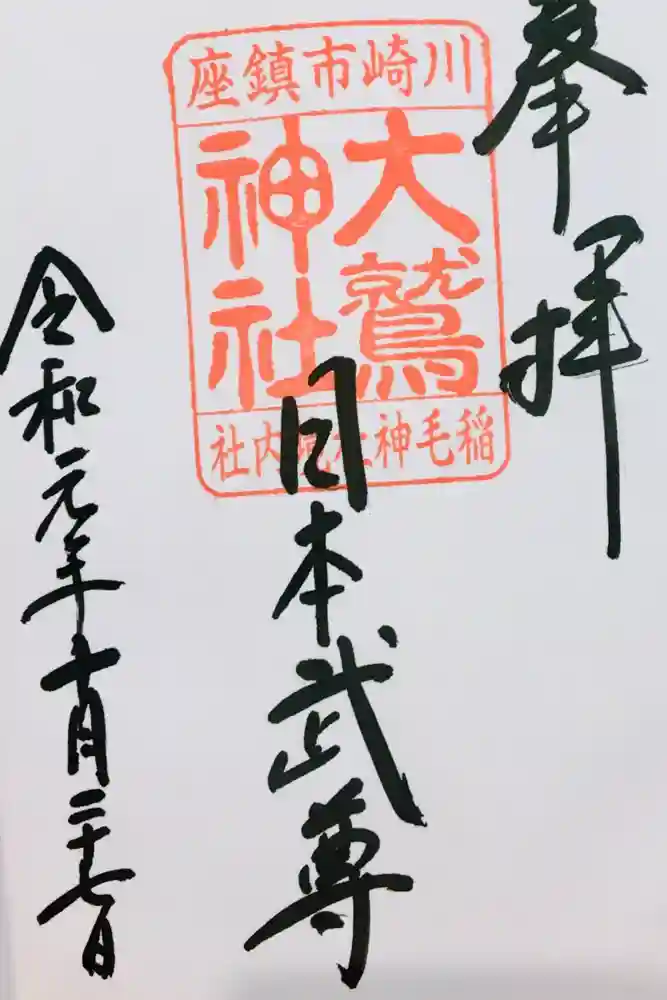 奉拝
川崎市鎮座
大鷲
神社
稲毛神社境内社
日本武尊
令和元年十月二十七日